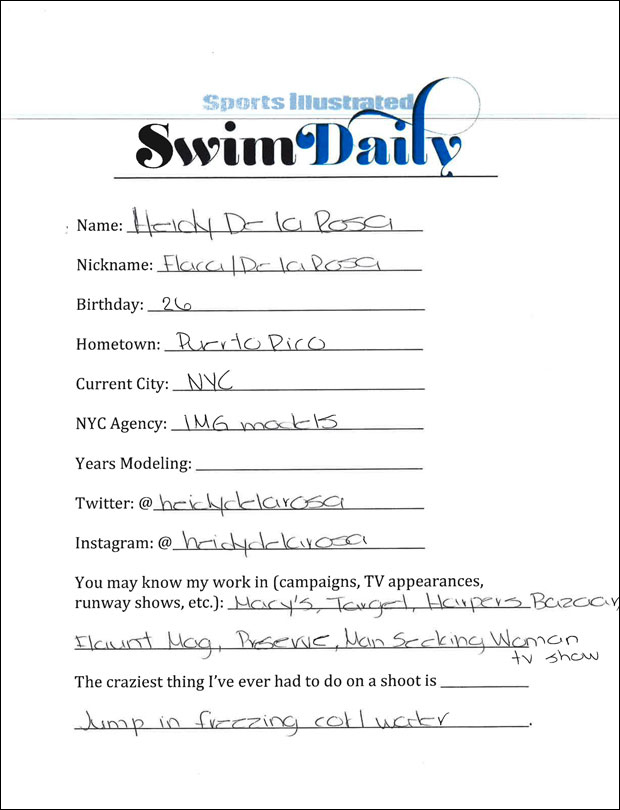 Sports Illustrated
Swim Daily
Name: Heidy De la Rosa
Nickname: Flaca/De la Rosa
Birthday: 26
Hometown: Puerto Rico
Current City: NYC
NYC Agency: IMG models
Years Modeling:
Twitter: @ heidydelarosa
Instagram: @ heidydelarosa
You may know my work in (campaigns, TV appearances,
runway shows, etc.): Macy's, Target, Harpers Bazaar,
Flaunt Mag, Preserve, Man Seeking Woman
tv show
The craziest thing I've ever had to do on a shoot is
Jump in freezing cold water.